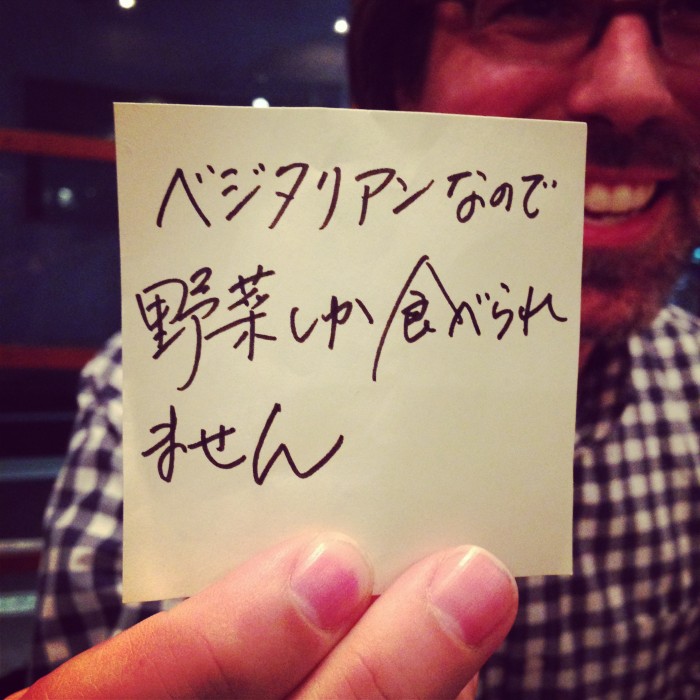 ベジタリアンなので
野菜しか食べられ
ません